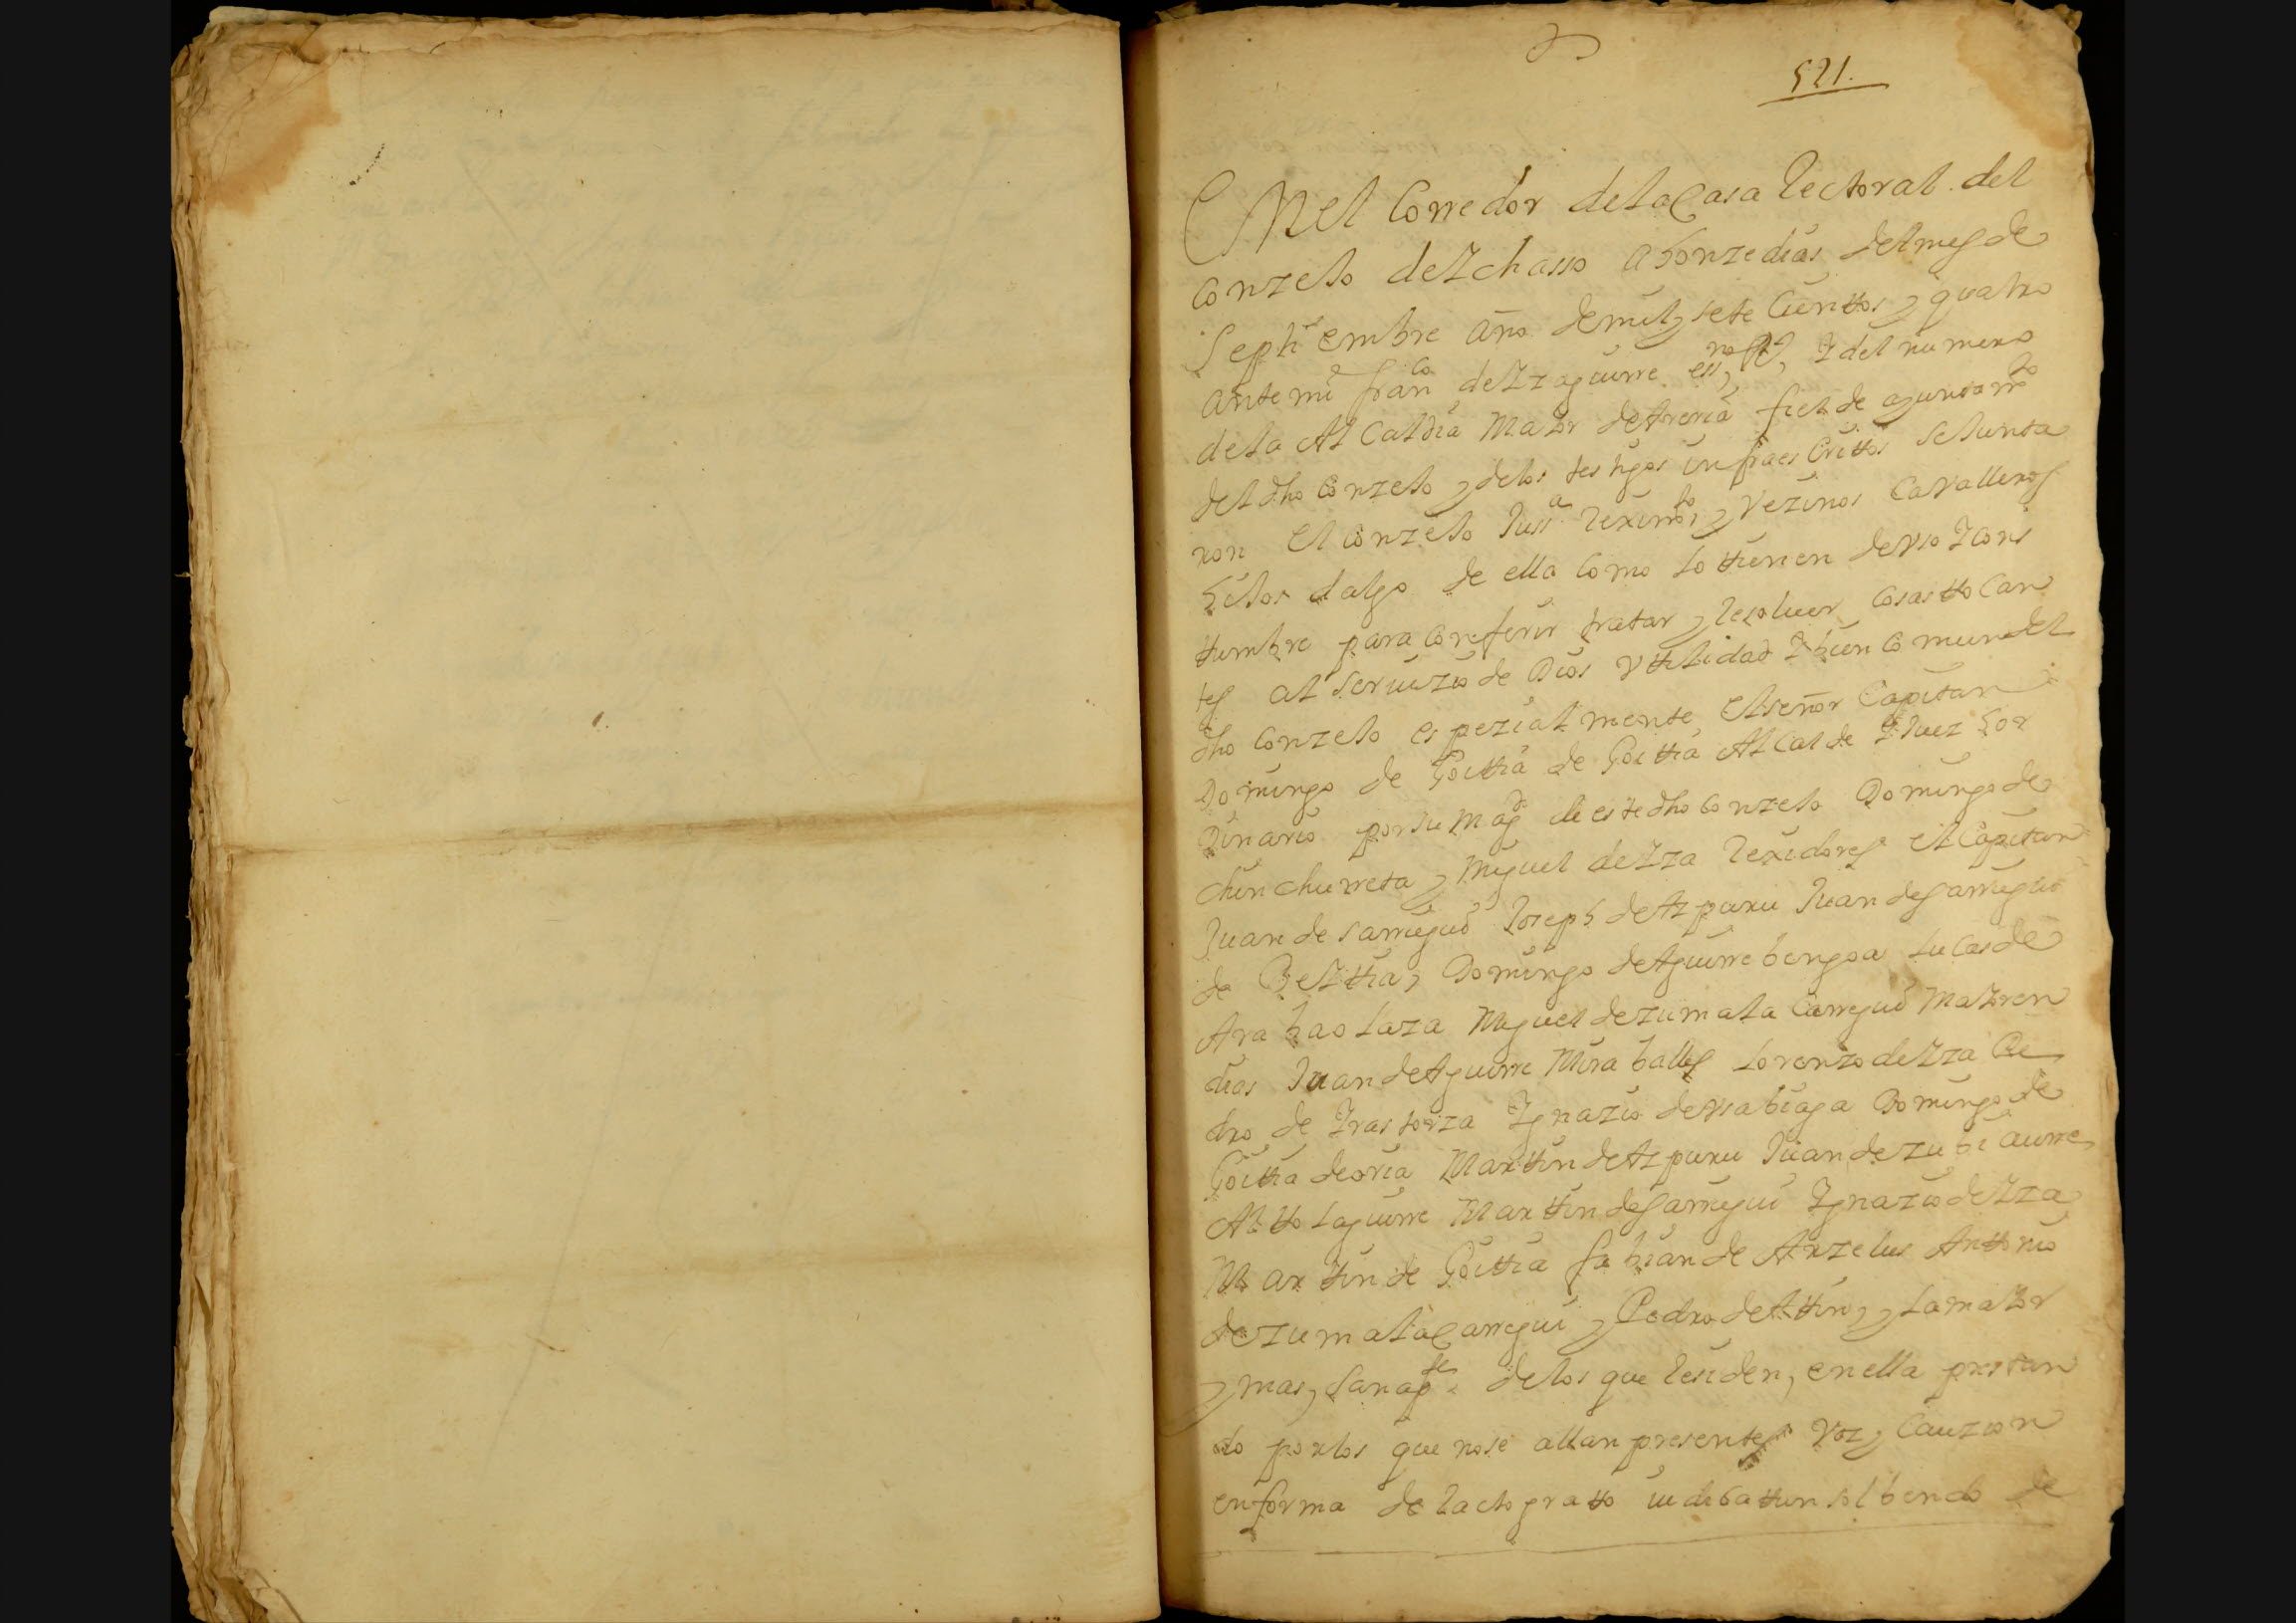 521.
En el Corredor de la Casa Rectoral del
conzejo de Ychasso a honze dias del mes de
Septiembre año de mil y sete Cienttos y quatro
ante mi fran^co de Yzaguirre ess^no R^l, Y del numero
de la Al Caldia Maior de Areria fiel de ayuntam^to
del dho Conzejo y de los testigos infraes Crittos se Junta
ron El conzejo Juss^a Reximi^to y Vezinos Cavalleros
hijos dalgo de ella Como lo ttienen de vso Y Cos
tumbre para conferir tratar y Resoluer Cosas tto Can
tes al seruizio de Dios Vttilidad Y bien Comun del
dho Conzejo espezialmente El señor Capitan
Domingo de Goittia de Goittia Al Calde Y Juez hor
dinario por su mag^d de este dho Conzejo Domingo de
chinchurreta y Miguel de Yza Rexidores el Capitan
Juan de sarregui Joseph de Azpuru Juan de sarregui
de Beittia, Domingo de Aguirre bengoa Lucas de
Ara hao laza Miguel de zumala Carregui Maiz ren
dias Juan de Aguirre Miraballes Lorenzo de Yza Pe
dro de Yrastorza Ygnazio de Vsabiaga Domingo de
Goittia de oria Marttin de Azpuru Juan de zubiaurre
Altto laguirre Marttin de sarregui Ygnazio de Yza
Marttin de Goittia fabian de Arzelus Anttonio
de zumalaCarregui y Pedro de Attin, y la maior
y mas, sana p^te de los que Residen, en ella prestan
do por los que no se allan presentes Voz y Cauzion
en forma de Racto gratto iudicattun solbendo de